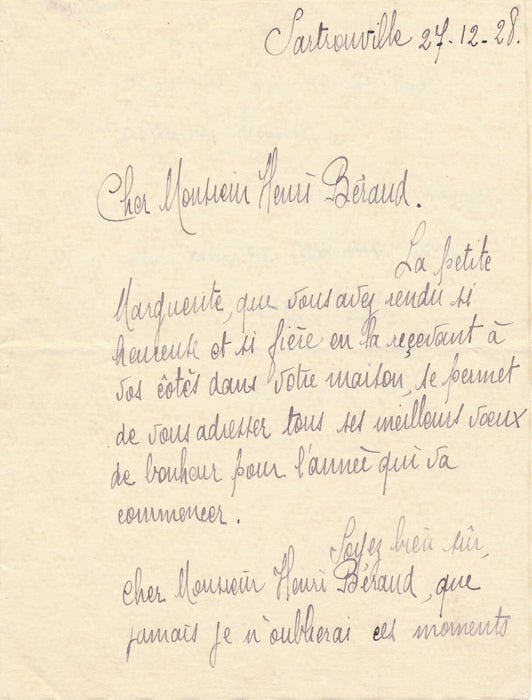 Sartrouville 27-12-28.
Cher Monsieur Henri Béraud.
La petite
Marguerite, que vous avez rendu si
heureuse et si fière en la reçevant à
vos côtés dans votre maison, se permet
de vous adresser tous ses meilleurs vœux
de bonheur pour l'année qui va
commencer.
Soyez bien sûr,
cher Monsieur Henri Béraud, que
jamais je n'oublierai ces moments